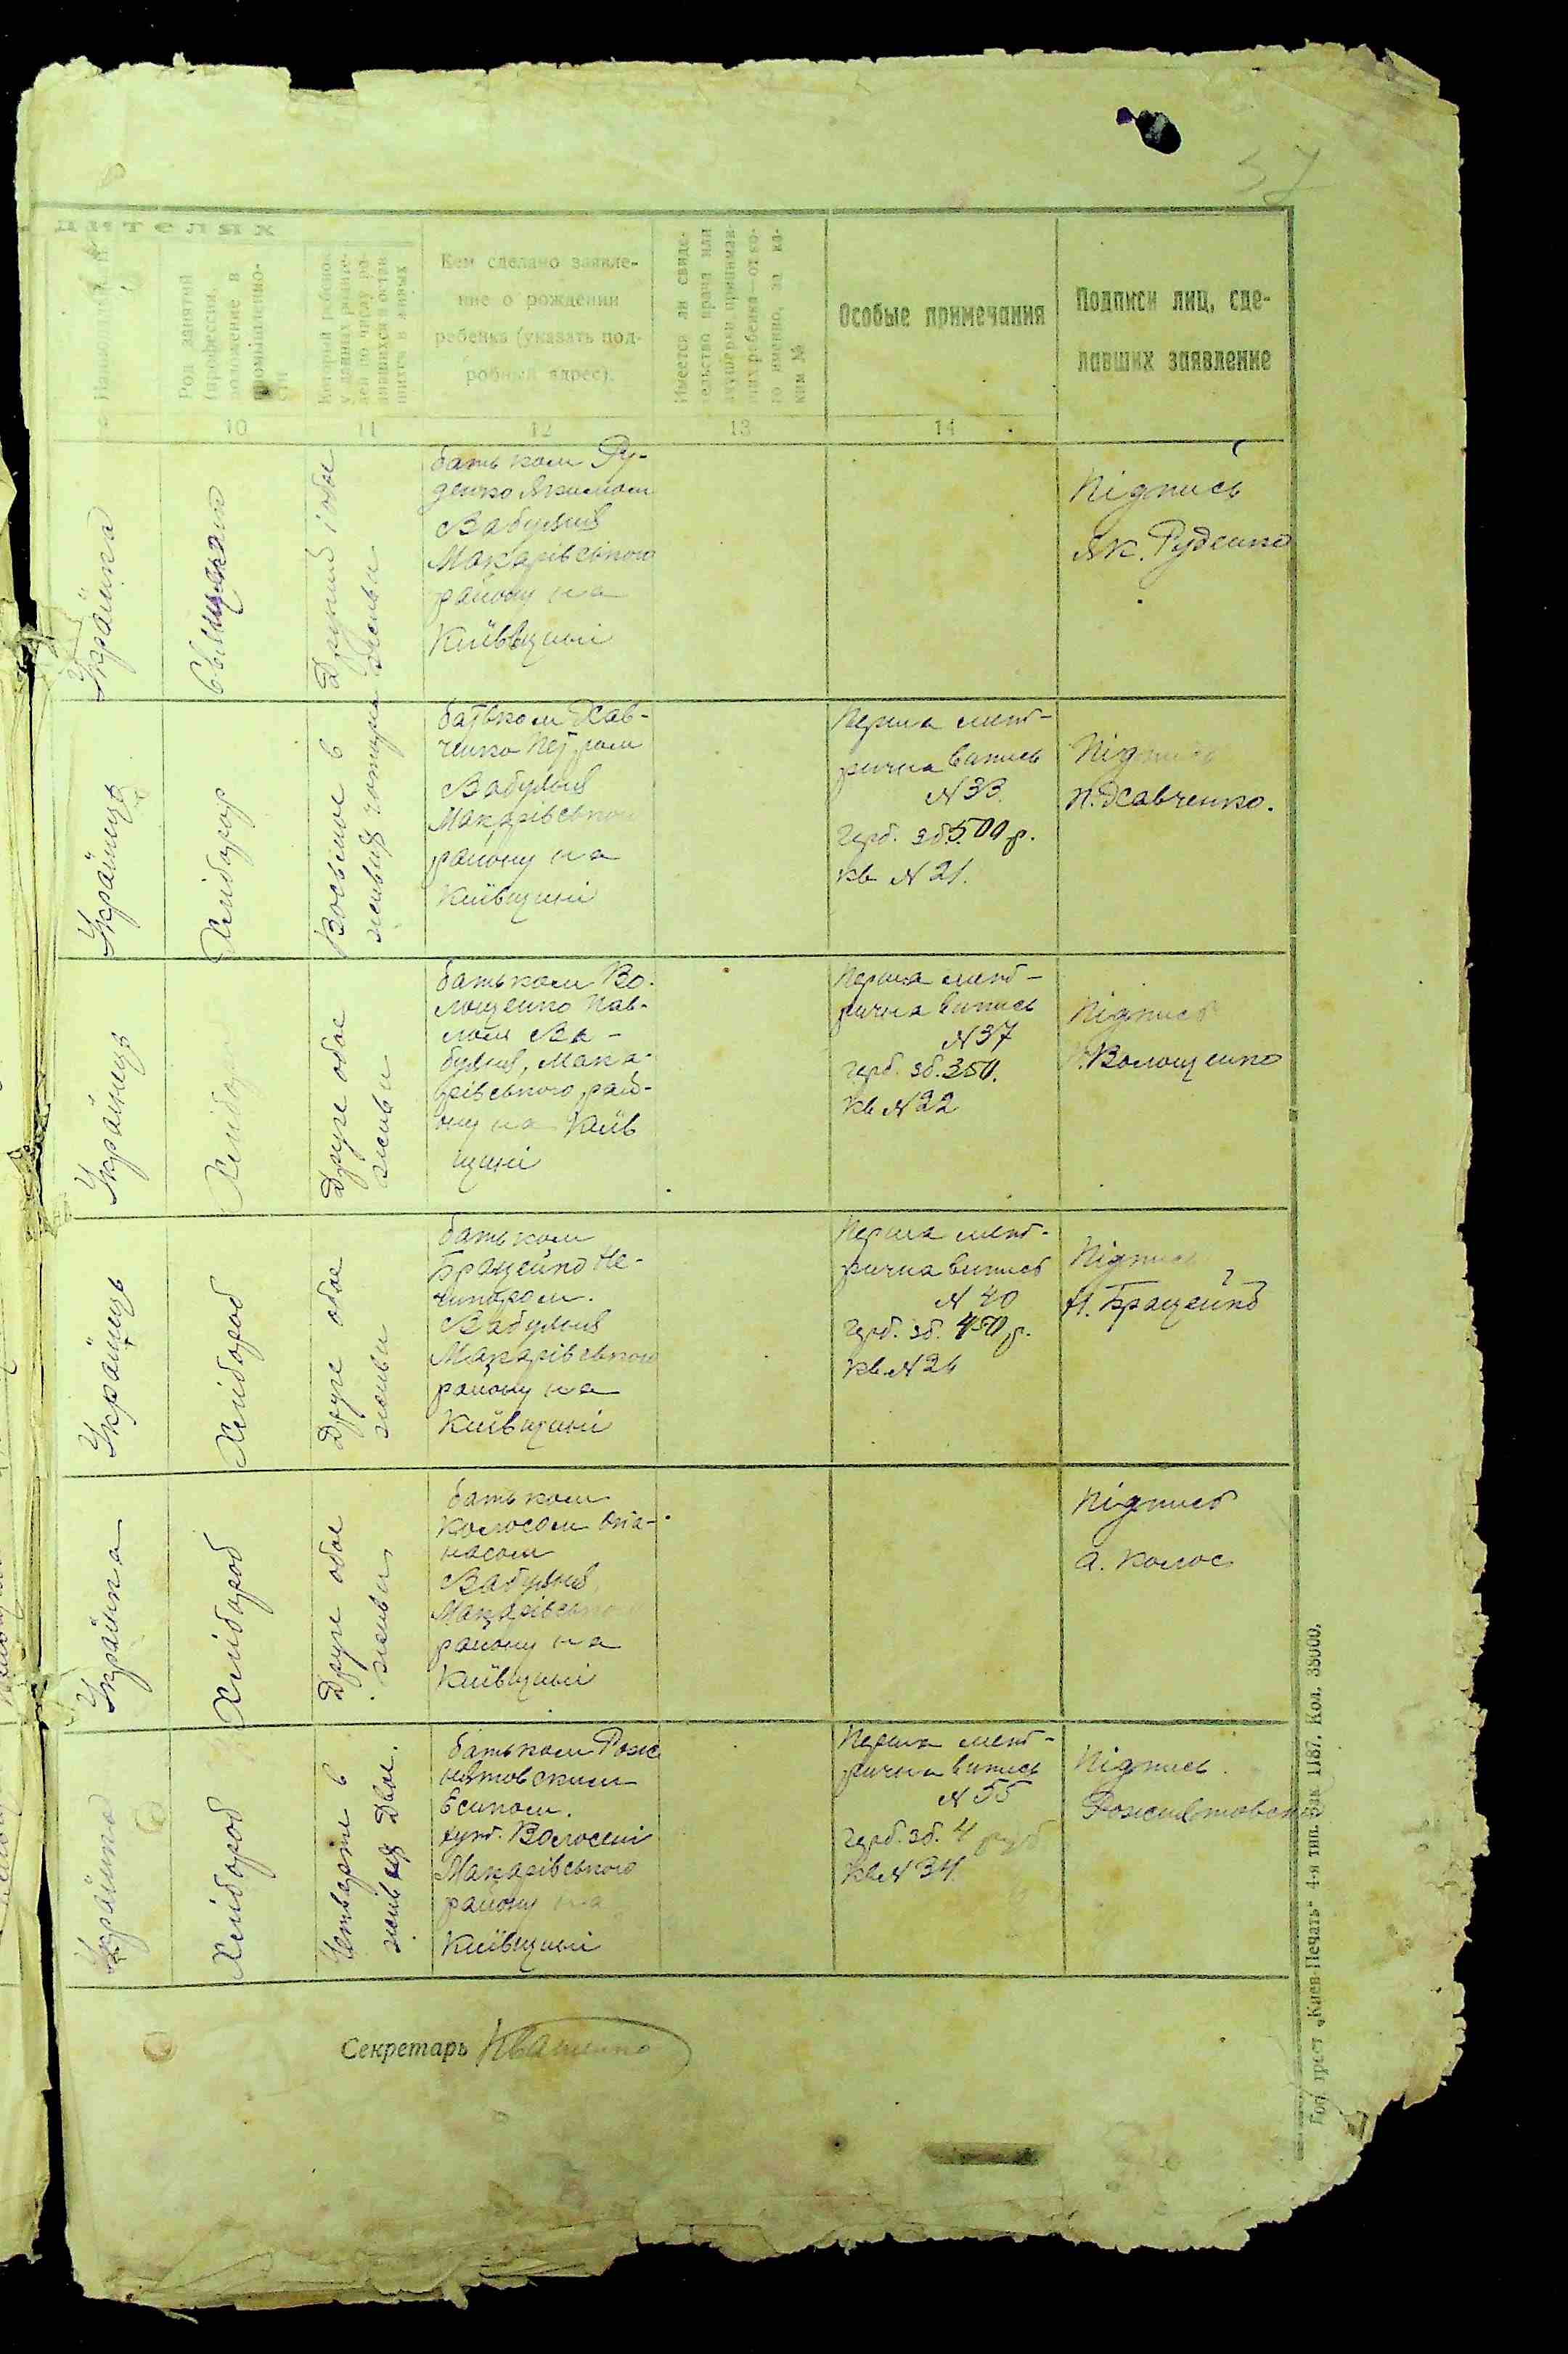 37
дителях
Национальность
Род занятий
(профессия,
положение в
промышленно-
сти
Который ребенок
у данных родите-
лей по числу ро-
дившихся и остав
шихся в живых
Кем сделано заявле-
ние о рождении
ребенка (указать под-
робный адрес).
Имеется ли свиде-
тельство врача или
акушерки принимав-
ших ребенка—от ко-
го именно, за ка-
ким №
Особые примечания
Подписи лиц, сде-
лавших заявление
10
11
12
13
14
Українка
Другий і обоє
живи
батьком Ру-
денко Якимом
Вабуля
Макарівського
району на
Київщині
Підпись
Як. Руденко
Українець
Хлібороб
Восьмоє в
живих чотири
батьком Хав-
ченко Петром
Вабуля
Макарівського
району на
Київщині
Перша мет-
рична випись
N 33.
герб. зб. 500 р.
кв N 21.
Підпись
П. Хавченко.
Українець
Хлібороб
Друге обоє
живи
батьком Во-
лощенко Пав-
лом Ва-
буля, Мака-
рівського рай-
ону на Київ
щині
Перша мет-
рична випись
N 37
герб. зб. 350.
кв N 22
Підпись
П. Волощенко
Українець
Хлібороб
Друге обоє
живи
батьком
Браценко Не-
чипором.
Вабуля
Макарівського
району на
Київщині
Перша мет-
рична випись
N 40
герб. зб. 450 р.
кв. N 26
Підпись
Н. Браценко
Українка
Хлібороб
Друге обоє
живи
батьком
Колосом Опа-
насом
Вабуля,
Макарівського
району на
Київщині
Підпись
А. Колос
Українка
Хлібороб
Четверте в
живих двоє.
батьком Рожс
нятовским
Есипом.
хут. Волосені
Макарівського
району на
Київщині
Перша мет-
рична випись
N 55
герб. зб. 4 руб
кв N 34.
Підпись.
Рожнятовский
Секретарь Ивашенко
Гос. трест „Киев-Печать“ 4-я тип. Зак. 1187. Кол. 38000.